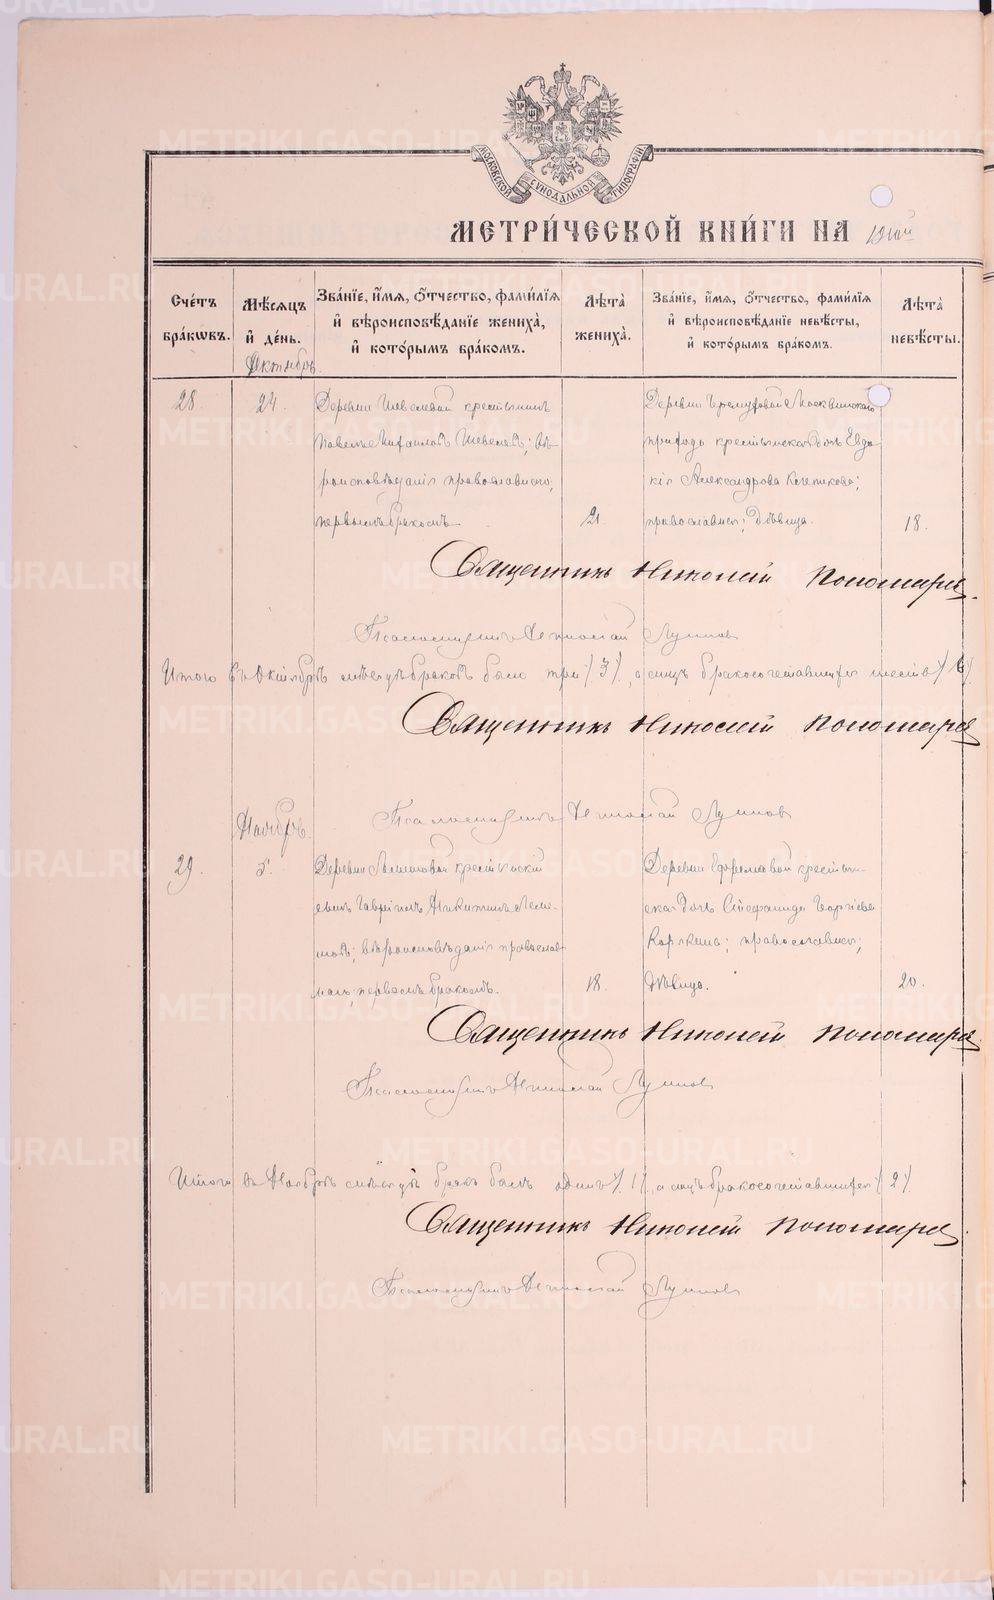 МОСКОВСКОЙ СѴНОДАЛЬНОЙ ТИПОГРАФІИ
МЕТРИ́ЧЕСКОЙ КНИ́ГИ НА
Сче́тъ бра́ковъ.
Мѣ́сяцъ и҆ де́нь.
Зва́нїе, и҆́мя, ѻ҆́тчество, фами́лїя и҆ вѣроисповѣ́данїе жениха̀, и҆ кото́рымъ бра́комъ.
Лѣ́та жениха̀.
Зва́нїе, и҆́мя, ѻ҆́тчество, фами́лїя и҆ вѣроисповѣ́данїе невѣ́сты, и҆ кото́рымъ бра́комъ.
Лѣ́та невѣ́сты.
Октябрь.
28.
24.
Деревни Шевелевой крестьянинъ
Павелъ Михаиловъ Шевелевъ; вѣ-
роисповѣданія православнаго,
первымъ бракомъ
21.
Деревни Москвинскаго
прихода крестьянская дочь Евдо-
кія Александрова
православной; дѣвица.
18.
Священникъ Николай Пономаревъ.
Псаломщикъ Лупповъ
Итого въ Октябрѣ мѣсяцѣ браковъ было три /3/, а лицъ бракосочетавшихся шесть /6/.
Священникъ Николай Пономаревъ
Псаломщикъ Лупповъ
Ноябрь.
29.
5.
Деревни крестьянскій
сынъ Гавріилъ Никитинъ
вѣроисповѣданія православ-
первымъ бракомъ.
18.
Деревни крестьян-
ская дочь Стефанида Георгіева
православной;
дѣвица.
20.
Священникъ Николай Пономаревъ
Псаломщикъ Лупповъ
Итого въ Ноябрѣ мѣсяцѣ бракъ былъ одинъ /1/, а лицъ бракосочетавшихся /2/.
Священникъ Николай Пономаревъ.
Псаломщикъ Лупповъ
METRIKI.GASO-URAL.RU